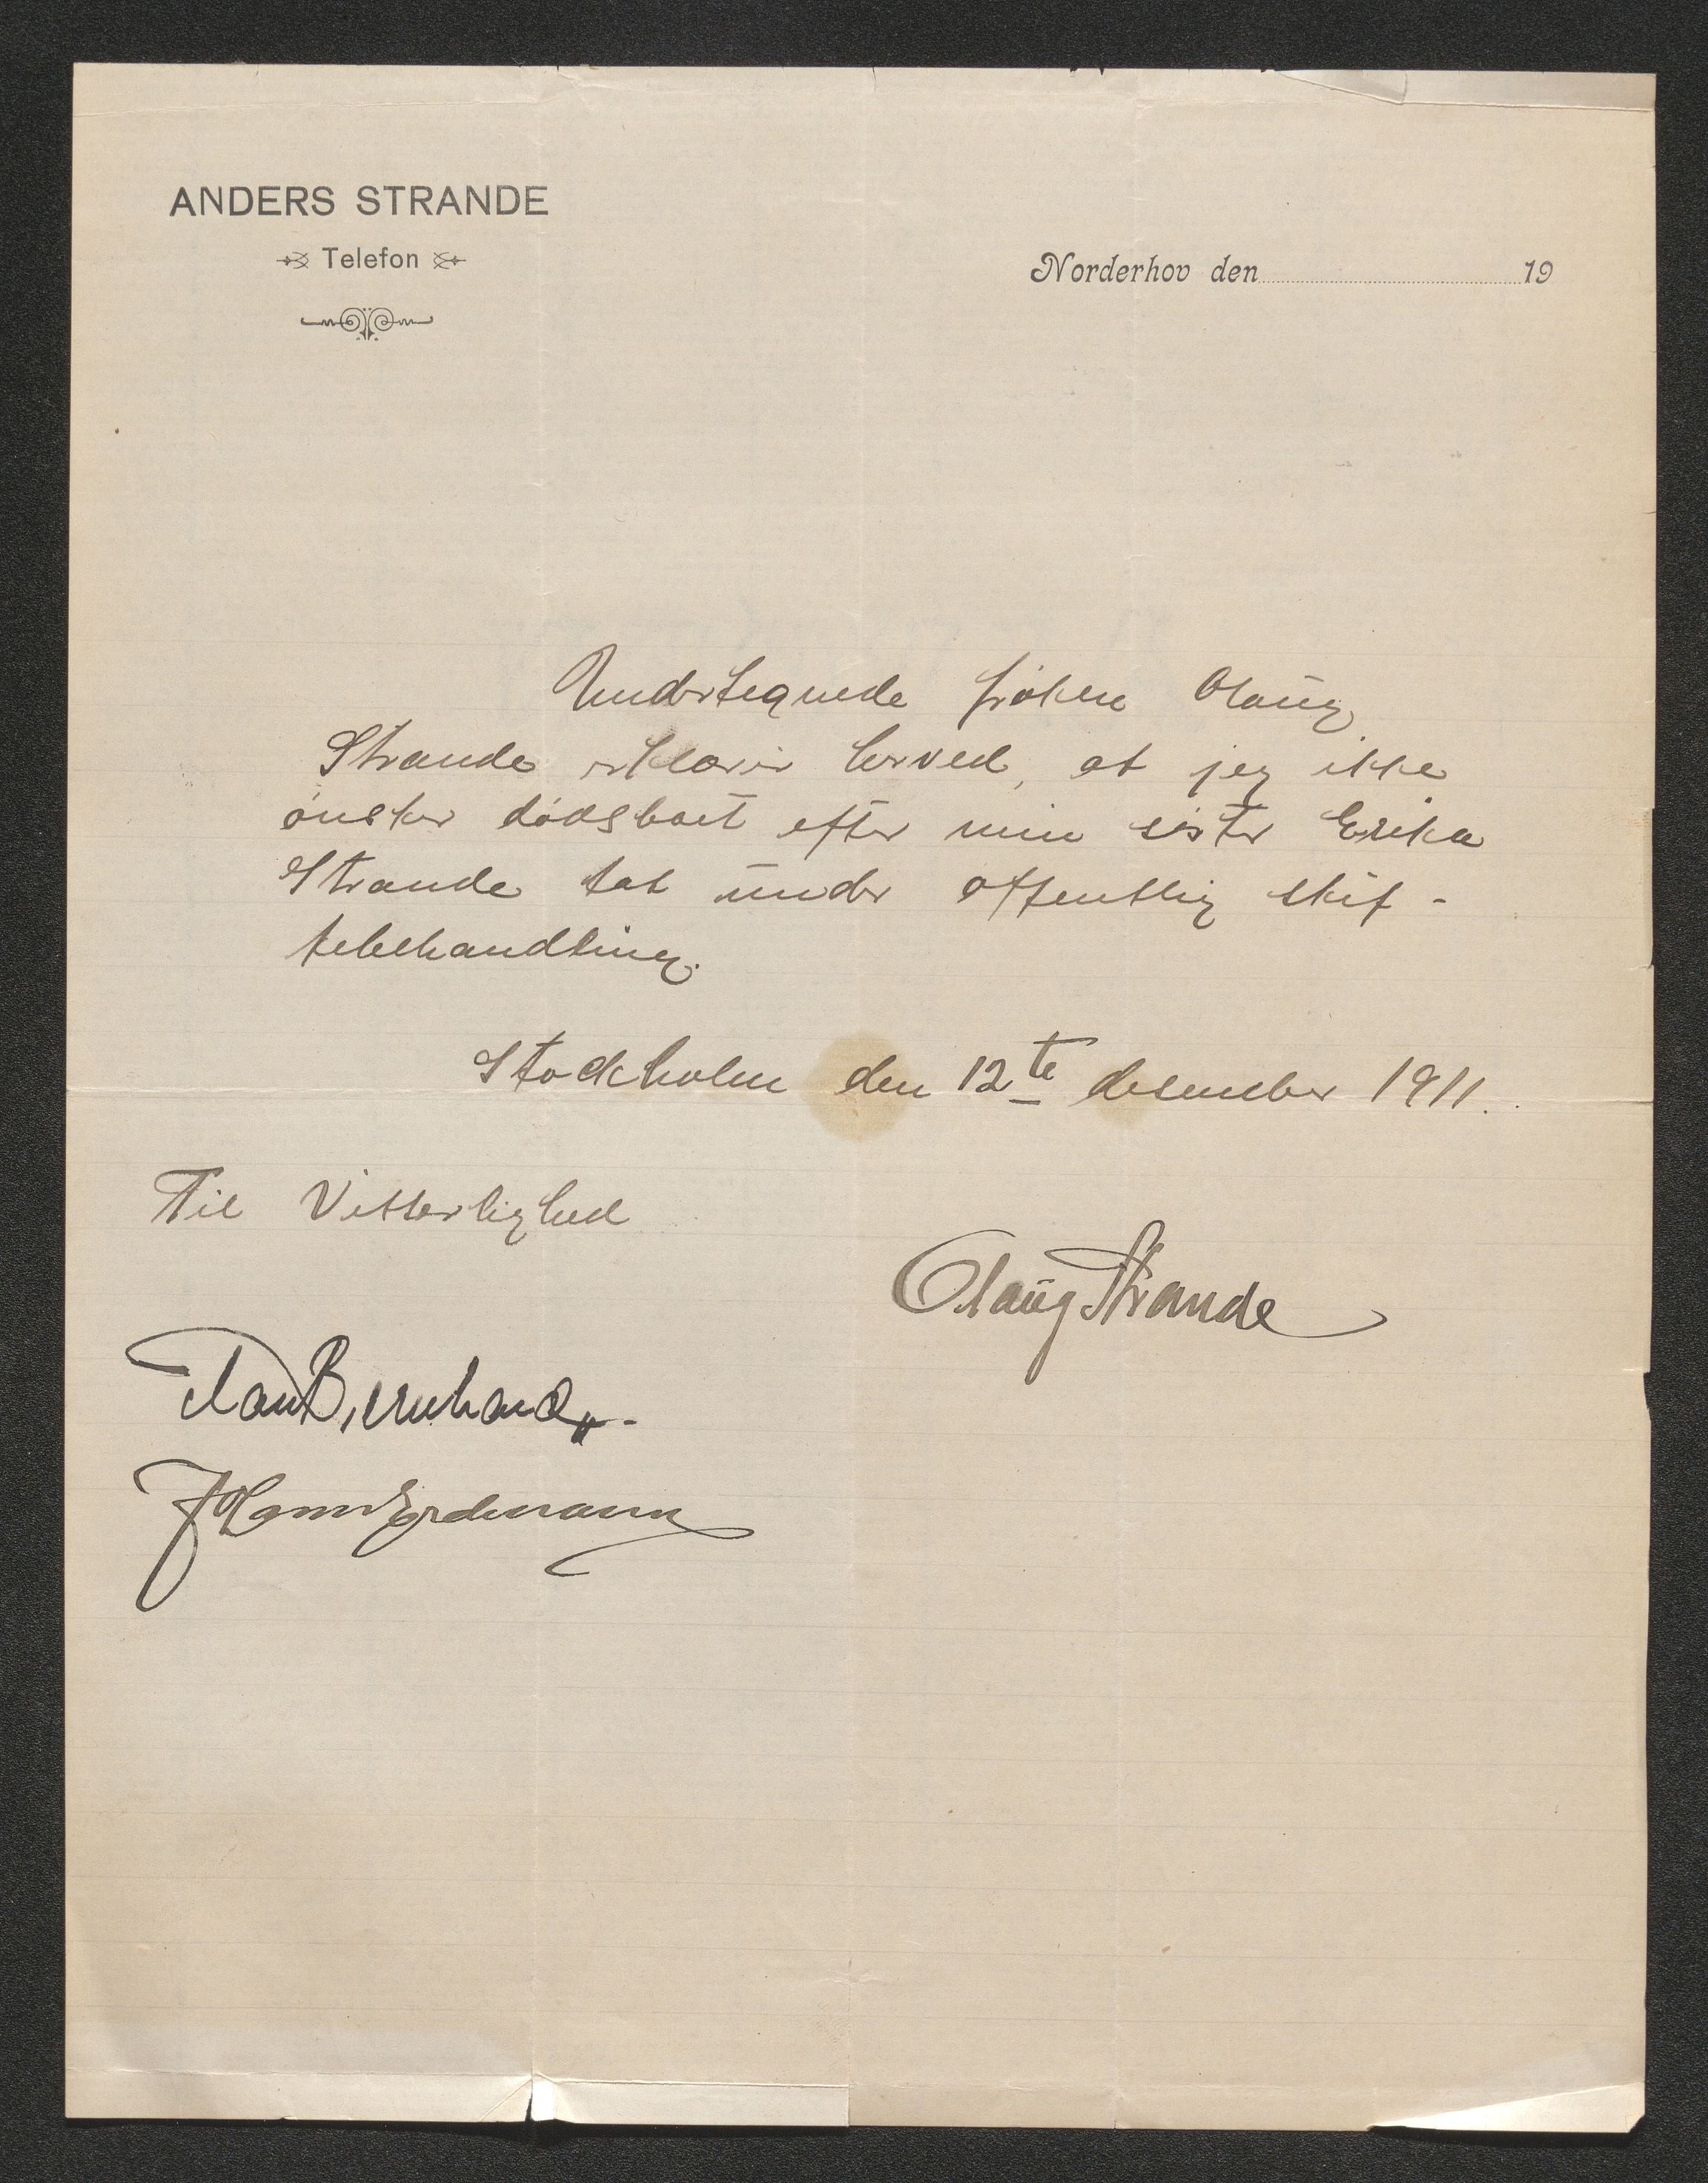 ANDERS STRANDE
Telefon
Norderhov den 19
Undertegnede frøken Olaug
Strande erklærer herved, at jeg ikke
ønsker dødsboet efter min sister Erika
Strande tat under offentlig skif-
tebehandling.
Stockholm den 12te desember 1911.
Til Vitterlighed
Olaug Strande